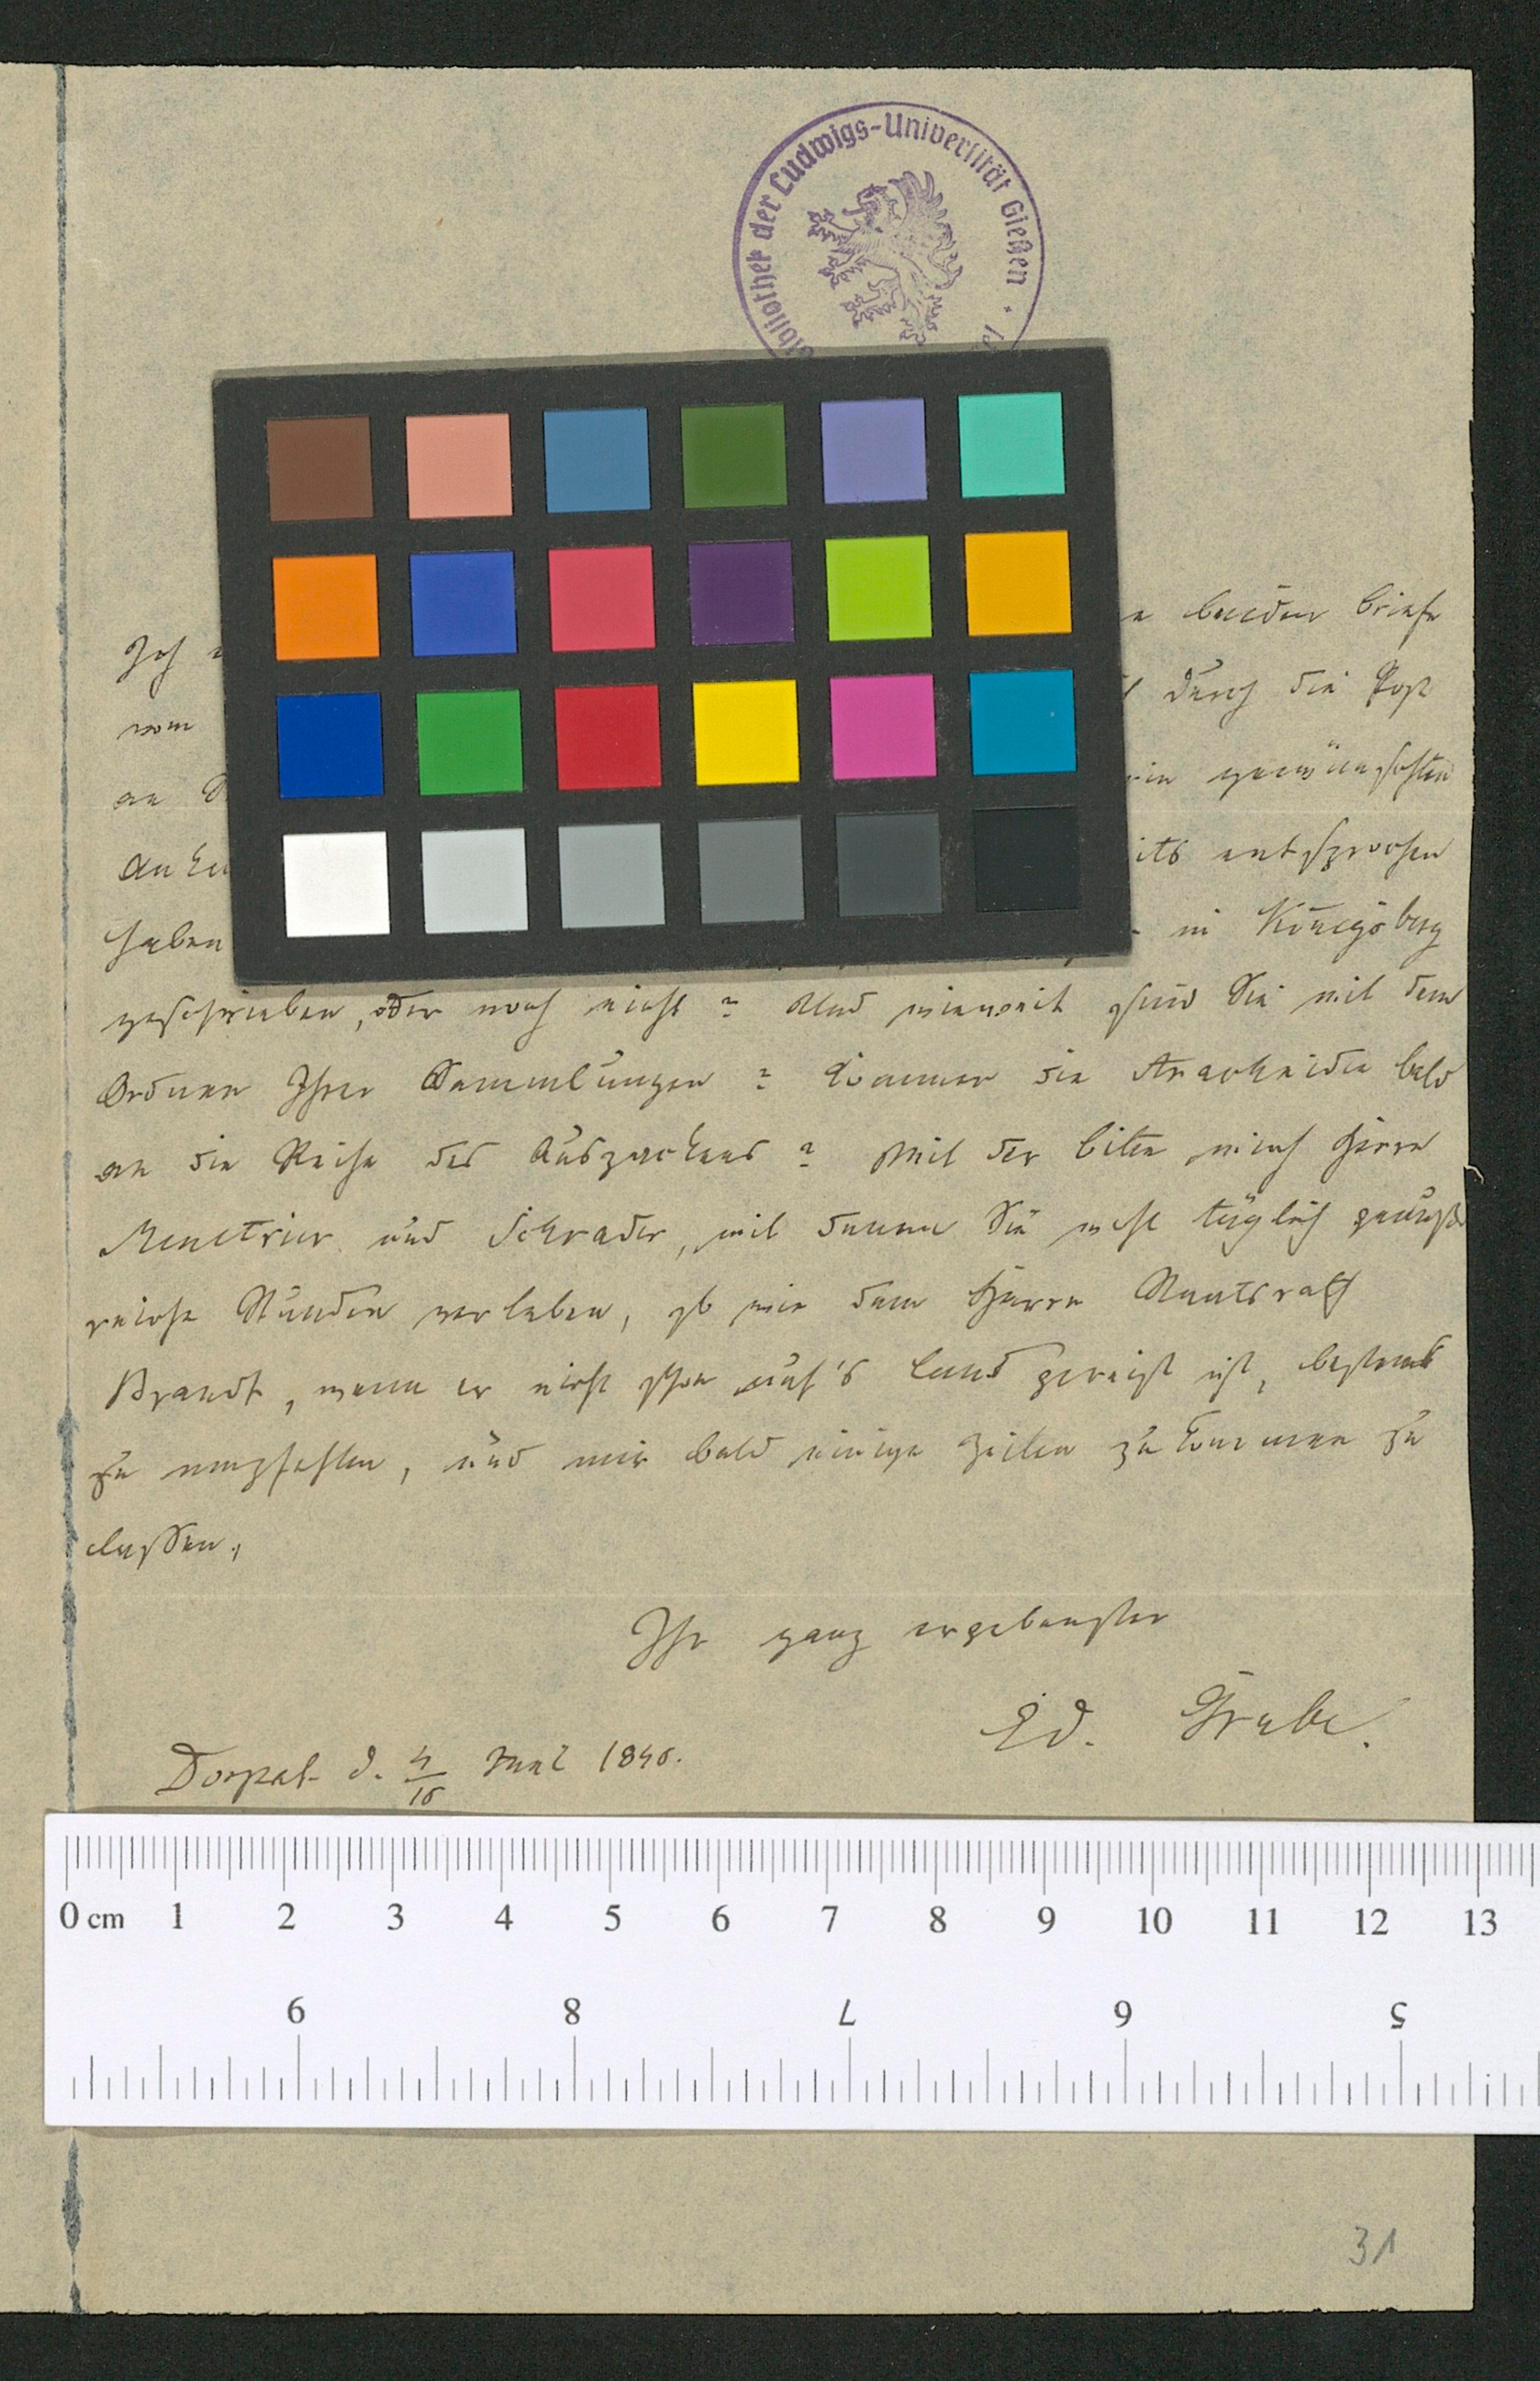 Bibliothek der Ludwigs-Universität Gießen
Ich
beiden Briefe
vom
durch die Post
an
gewünschten
Anke
its entsprochen
haben
in Königsberg
geschrieben, oder noch nicht? Und wieweit sind Sie mit dem
Ordnen Ihrer Sammlungen? Kommen die Arachniden bald
an die Reihe des Auspackens? Mit der Bitte, mich Herrn
Menetrier und Schrader, mit denen Sie wohl täglich genuß
reiche Stunden verleben, so wie dem Herrn Staatsrath
Brandt, wenn er nicht schon auf's Land gereist ist, bestens
zu empfehlen, und mir bald einige Zeilen zukommen zu
lassen,
Ihr ganz ergebenster
Ed. Grube.
Dorpat d. Juni
0 cm 1 2 3 4 5 6 7 8 9 10 11 12 13
9 8 7 6 5
31